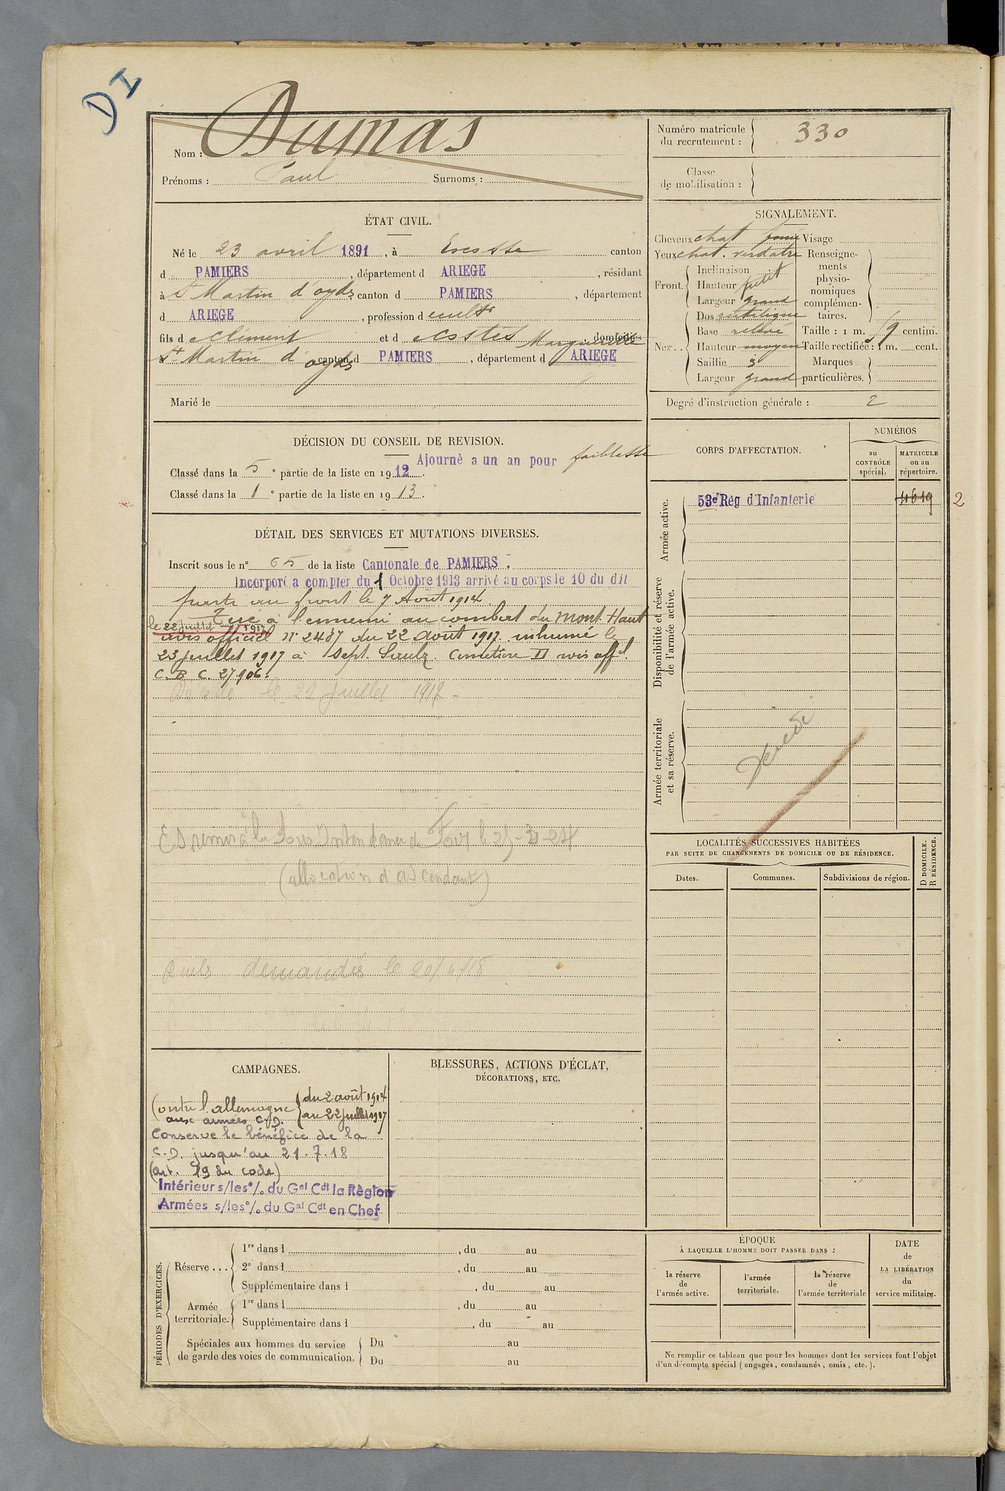 DI
Nom : Dumas
Prénoms : Paul Surnoms :
Numéro matricule du recrutement : 330
Classe de mobilisation :
ÉTAT CIVIL.
Né le 23 avril 1891, à Escosse canton
d PAMIERS, département d ARIEGE, résidant
à St Martin d'oydes canton d PAMIERS, département
d ARIEGE, profession d cultr
fils de Clément et d Marguerite domiciliés
St Martin d'oydes canton d PAMIERS, département d ARIEGE
Marié le
SIGNALEMENT.
Cheveux chat. foncé Visage
Yeux chat. verdatre Renseigne-
Front. Inclinaison ments
Hauteur petit physio-
Largeur grand nomiques
complémen-
Nez. Dos rectiligne taires.
Base relevé Taille : 1 m. centim.
Hauteur moyen Taille rectifiée : 1 m. cent.
Saillie Marques
Largeur grand particulières.
Degré d'instruction générale : 2
DÉCISION DU CONSEIL DE REVISION.
Ajourné a un an pour faiblesse
Classé dans la 5e partie de la liste en 1912.
Classé dans la 1e partie de la liste en 1913.
CORPS D'AFFECTATION.
NUMÉROS
au CONTRÔLE spécial.
MATRICULE ou au répertoire.
Armée active.
53e Rég d'Infanterie 4619 2
Disponibilité et réserve de l'armée active.
Armée territoriale et sa réserve.
Décédé
DÉTAIL DES SERVICES ET MUTATIONS DIVERSES.
Inscrit sous le n° 65 de la liste Cantonale de PAMIERS.
Incorporé a compter du 1 Octobre 1913 arrivé au corps le 10 du dit
parti au front le 7 Août 1914.
Tué à l'ennemi au combat du Mont Haut
le 22 juillet 1917
avis officiel N° 2487 du 22 Août 1917. inhumé le
23 juillet 1917 à Sept. Saulx. Cimetière II avis offel.
C. B C. 27906.
Décédé le 22 Juillet 1917.
(allocation d'ascendant)
demandés le 20/4/18
LOCALITÉS SUCCESSIVES HABITÉES
PAR SUITE DE CHANGEMENTS DE DOMICILE OU DE RÉSIDENCE.
Dates. Communes. Subdivisions de région. D DOMICILE. R RÉSIDENCE.
CAMPAGNES.
Contre l'allemagne du 2 août 1914
aux armées C.D. au 22 juillet 1917
Conserve le bénéfice de la
C.D. jusqu'au 21.7.18
(art. 19 du code)
Intérieur s/les °/. du Gal Cdt la Région
Armées s/les °/. du Gal Cdt en Chef.
BLESSURES, ACTIONS D'ÉCLAT,
DÉCORATIONS, ETC.
PÉRIODES D'EXERCICES.
Réserve ... 1re dans l , du au
2e dans l , du au
Supplémentaire dans l , du au
Armée territoriale. 1re dans l , du au
Supplémentaire dans l , du au
Spéciales aux hommes du service de garde des voies de communication. Du au
Du au
ÉPOQUE
À LAQUELLE L'HOMME DOIT PASSER DANS :
la réserve de l'armée active.
l'armée territoriale.
la réserve de l'armée territoriale
DATE de LA LIBÉRATION du service militaire.
Ne remplir ce tableau que pour les hommes dont les services font l'objet
d'un décompte spécial (engagés, condamnés, omis, etc.).